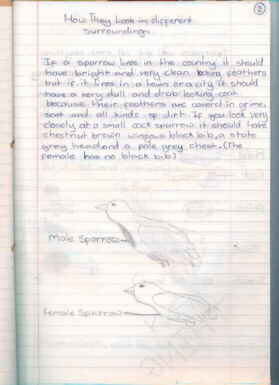 2
How They Look in different
surroundings
If a sparrow lives in the country it should
have bright and very clean looking feathers
but if it lives in a town or a city it should
have a very dull and drab looking coat
because their feathers are coverd in grime,
soot and all kinds of dirt. If you look very
closely at a small cock sparrow it should have
chestnut brown wings, a black bib, a slate
grey head and a pale grey chest. (The
female has no black bib)
Male Sparrow
Female Sparrow